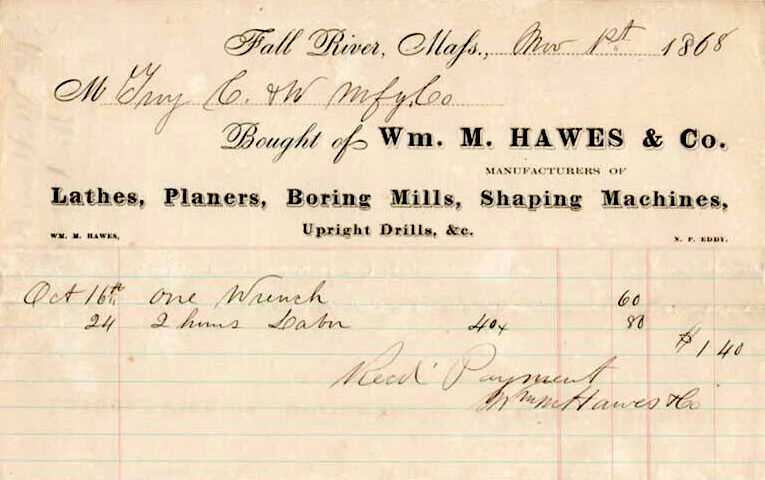 Fall River, Mass., Nov 1st 1868
M Troy C. & W Mfg. Co
Bought of Wm. M. HAWES & Co.
MANUFACTURERS OF
Lathes, Planers, Boring Mills, Shaping Machines,
WM. M. HAWES, Upright Drills, &c. N. P. EDDY.
Oct 16th one Wrench 60
24 2 hours Labor 40 80
$1 40
Recd Payment
Wm M Hawes & Co